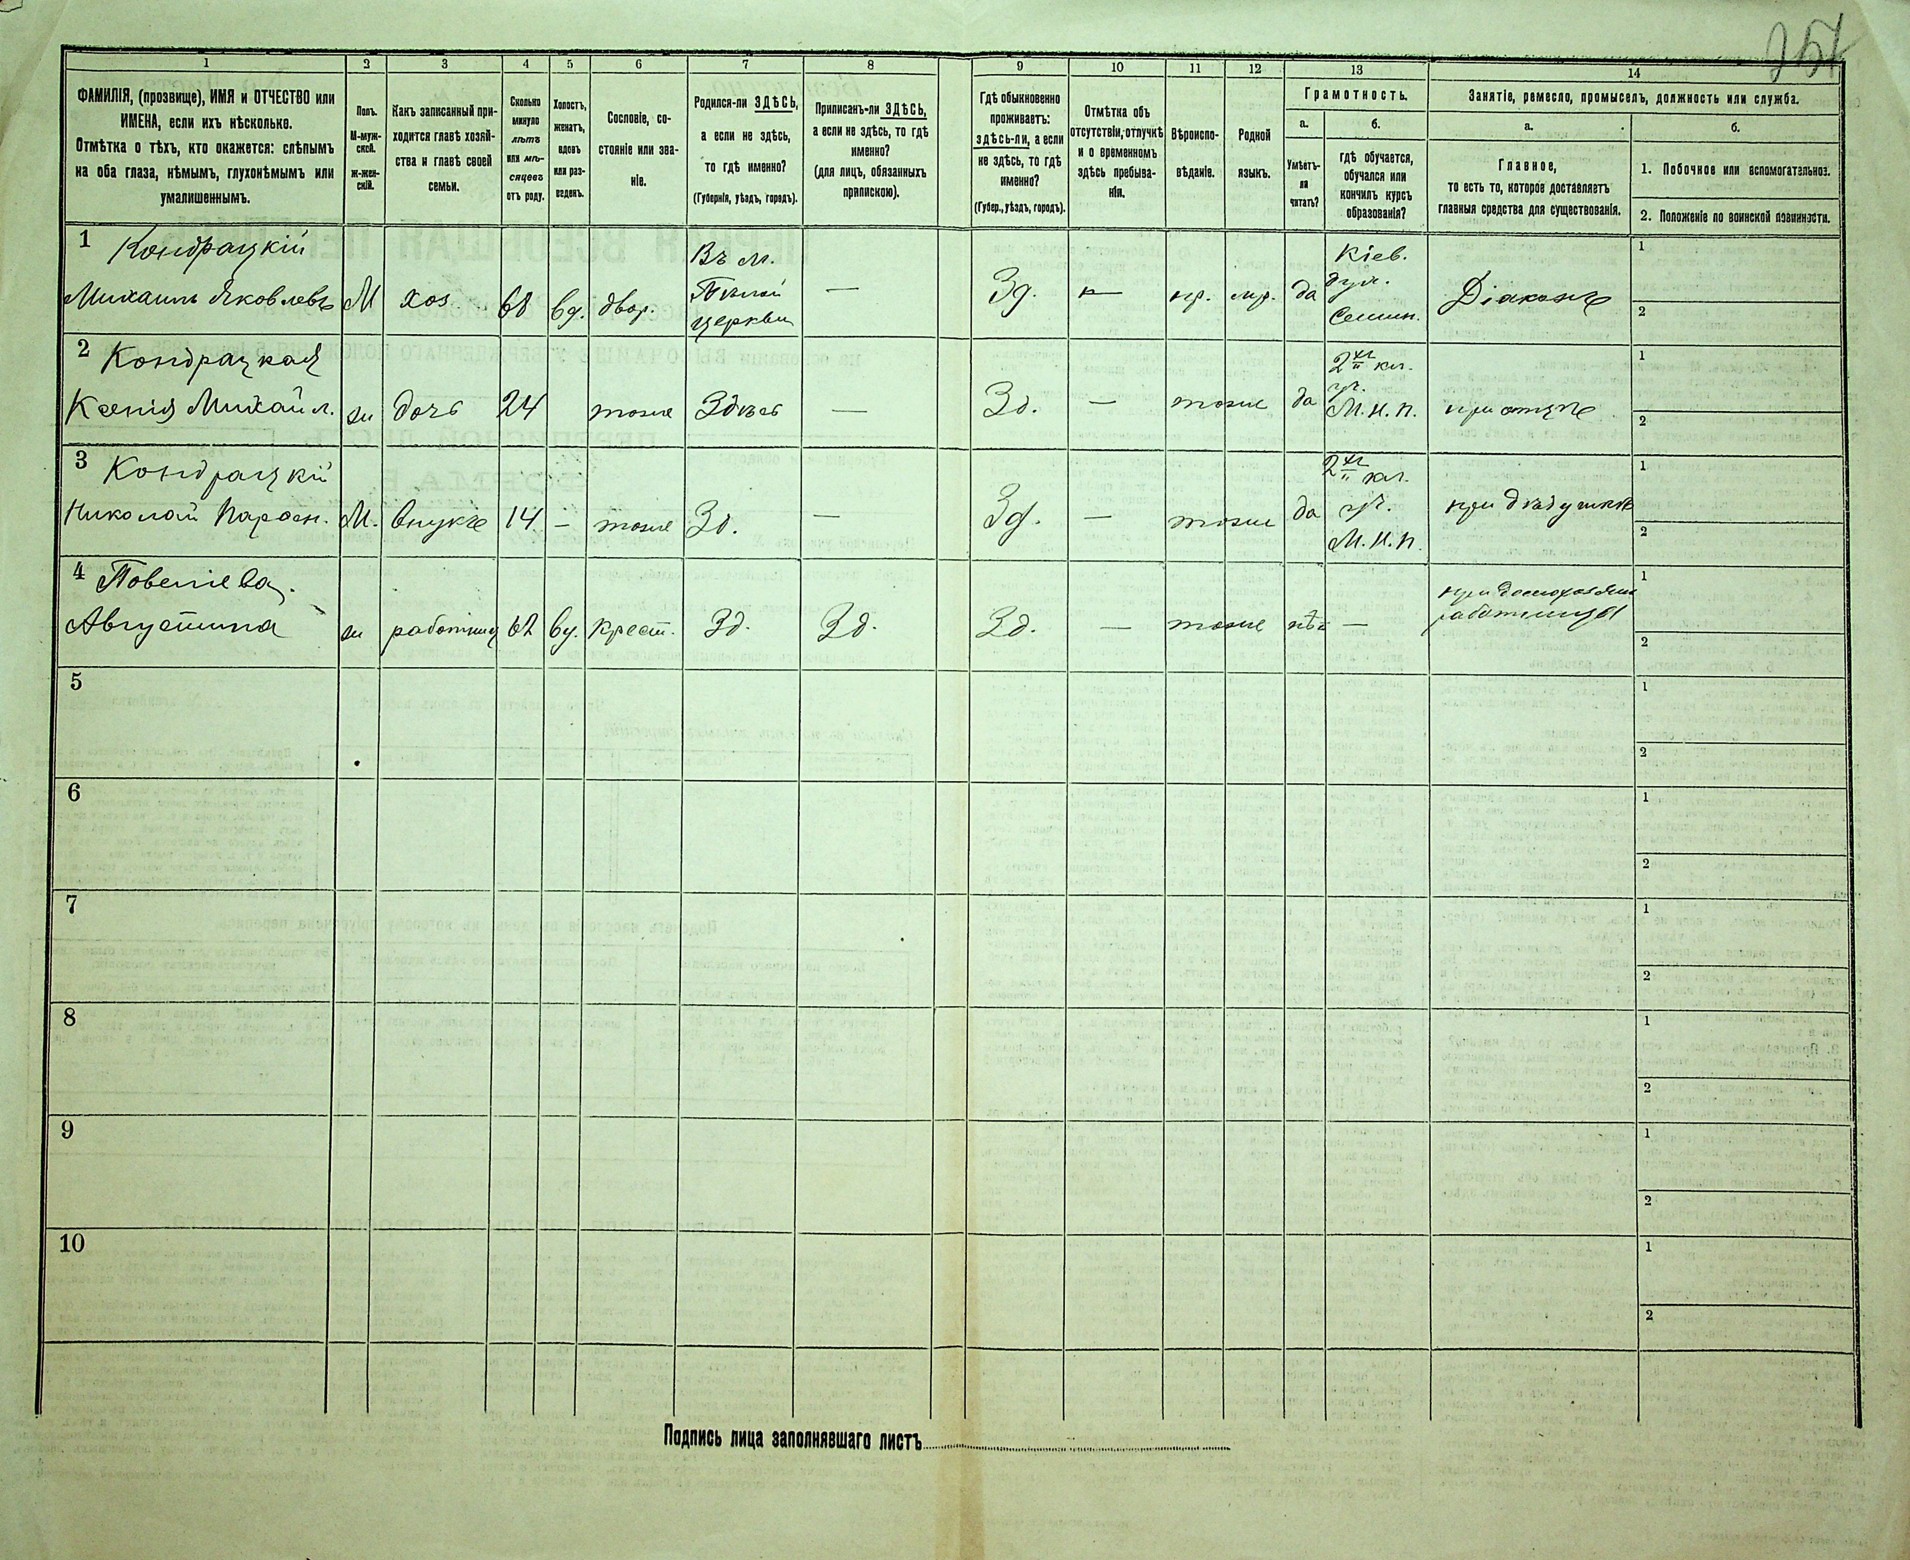 1 2 3 4 5 6 7 8 9 10 11 12 13 14
ФАМИЛІЯ, (прозвище), ИМЯ и ОТЧЕСТВО или
ИМЕНА, если ихъ нѣсколько.
Отмѣтка о тѣхъ, кто окажется: слѣпымъ
на оба глаза, нѣмымъ, глухонѣмымъ или
умалишеннымъ.
Полъ.
М-муж-
ской.
Ж-жен-
скій.
Какъ записанный при-
ходится главѣ хозяй-
ства и главѣ своей
семьи.
Сколько
минуло
лѣтъ
или мѣ-
сяцевъ
отъ роду.
Холостъ,
женатъ,
вдовъ
или раз-
веденъ.
Сословіе, со-
стояніе или зва-
ніе.
Родился-ли ЗДѢСЬ,
а если не здѣсь,
то гдѣ именно?
(Губернія, уѣздъ, городъ).
Приписанъ-ли ЗДѢСЬ,
а если не здѣсь, то гдѣ
именно?
(для лицъ, обязанныхъ
припискою).
Гдѣ обыкновенно
проживаетъ:
здѣсь-ли, а если
не здѣсь, то гдѣ
именно?
(Губер., уѣздъ, городъ).
Отмѣтка объ
отсутствіи, отлучкѣ
и о временномъ
здѣсь пребыва-
ніи.
Вѣроиспо-
вѣданіе.
Родной
языкъ.
Грамотность.
а.
Умѣетъ-
ли
читать?
б.
гдѣ обучается,
обучался или
кончилъ курсъ
образованія?
Занятіе, ремесло, промыселъ, должность или служба.
а.
Главное,
то есть то, которое доставляетъ
главныя средства для существованія.
б.
1. Побочное или вспомогательное.
2. Положеніе по воинской повинности.
1 Кондрацкій
Михаилъ Яковлевъ М хоз. 68 вд. двор.
Въ м.
Бѣлой
церкви
— Зд. — пр. мр. да
Кіев.
дух.
Семин.
Діаконъ
1
2
2 Кондрацкая
Ксенія Михайл. ж дочь 24 тоже Здѣсь — Зд. — тоже да
2хъ кл.
уч.
М. Н. П.
при отцѣ
1
2
3 Кондрацкій
Николай М. внукъ 14 — тоже Зд. — Зд. — тоже да
2хъ кл.
уч.
М. Н. П.
при дѣдушкѣ
1
2
4
Августина ж работниц 62 вд. Крест. Зд. Зд. Зд. — тоже нѣт —
работницы
1
2
5
1
2
6
1
2
7
1
2
8
1
2
9
1
2
10
1
2
Подпись лица заполнявшаго листъ